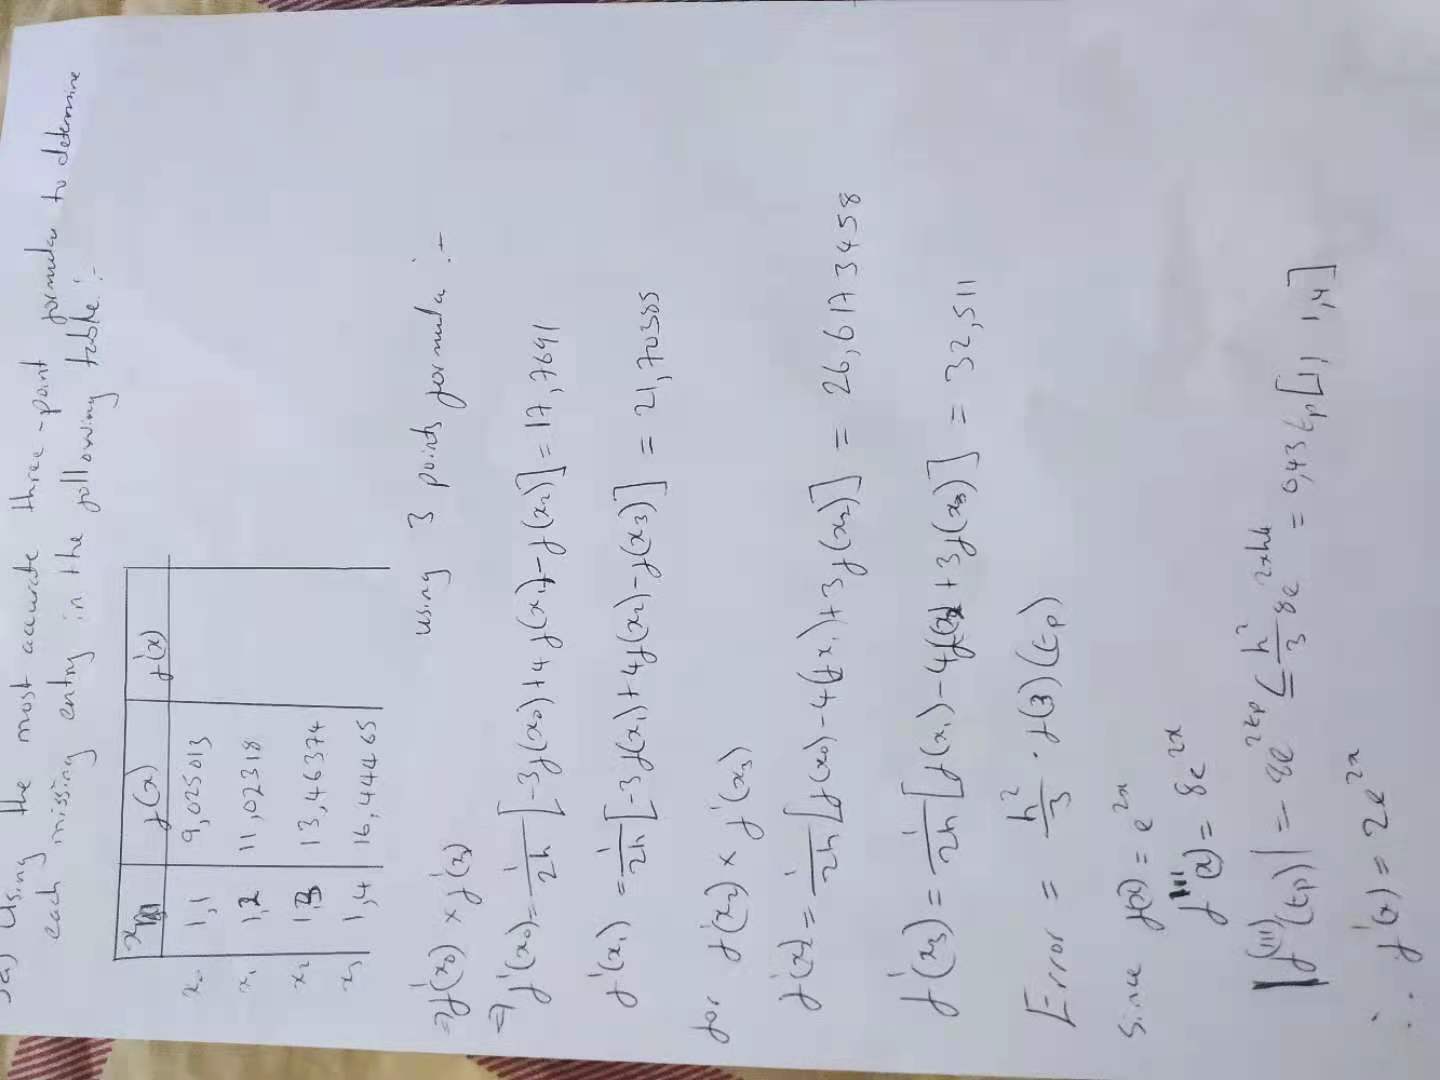 3a) Using the most accurate three-point formular to determine
each missing entry in the following table:-
x f(x) f'(x)
x₀ 1,1 9,025013
x₁ 1,2 11,02318
x₂ 1,3 13,46374
x₃ 1,4 16,44465
using 3 points formula :-
⇒ f'(x₀) x f'(x₃)
⇒ f'(x₀) = 1/2h [-3f(x₀)+4f(x₁)-f(x₂)] = 17,7691
f'(x₁) = 1/2h [-3f(x₁)+4f(x₂)-f(x₃)] = 21,70385
for f'(x₂) x f'(x₃)
f'(x₂) = 1/2h [f(x₀)-4(fx₁)+3f(x₂)] = 26,6173458
f'(x₃) = 1/2h [f(x₁)-4f(x₂)+3f(x₃)] = 32,511
Error = h²/3 . f(3)(tp)
Since f(x) = e^2x
f'''(x) = 8e^2x
|f^(III)(tp)| = 8e^2tp ≤ h²/3 8e = 0,43 tp[1,1 1,4]
∴ f'(x) = 2e^2x